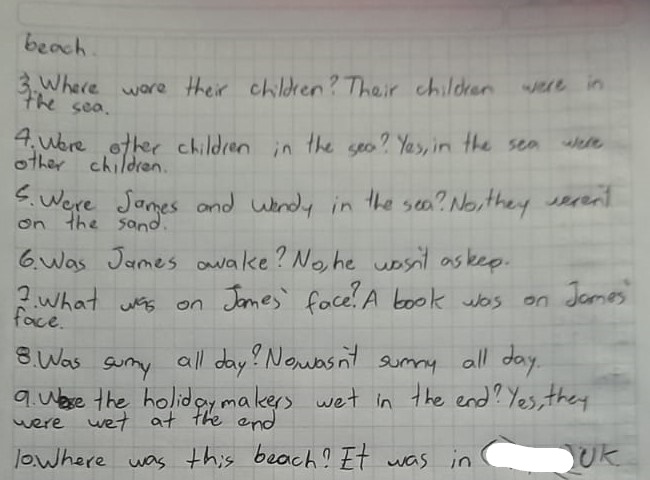 beach.
3. Where were their children? Their children were in
the sea.
4. Were other children in the sea? Yes, in the sea were
other children.
5. Were James and Wendy in the sea? No, they weren't
on the sand.
6. Was James awake? No, he wasn't askeep.
7. What was on James' face? A book was on James'
face.
8. Was sumy all day? No wasn't summy all day.
9. Were the holidaymakers wet in the end? Yes, they
were wet at the end
10. Where was this beach? Et was in UK